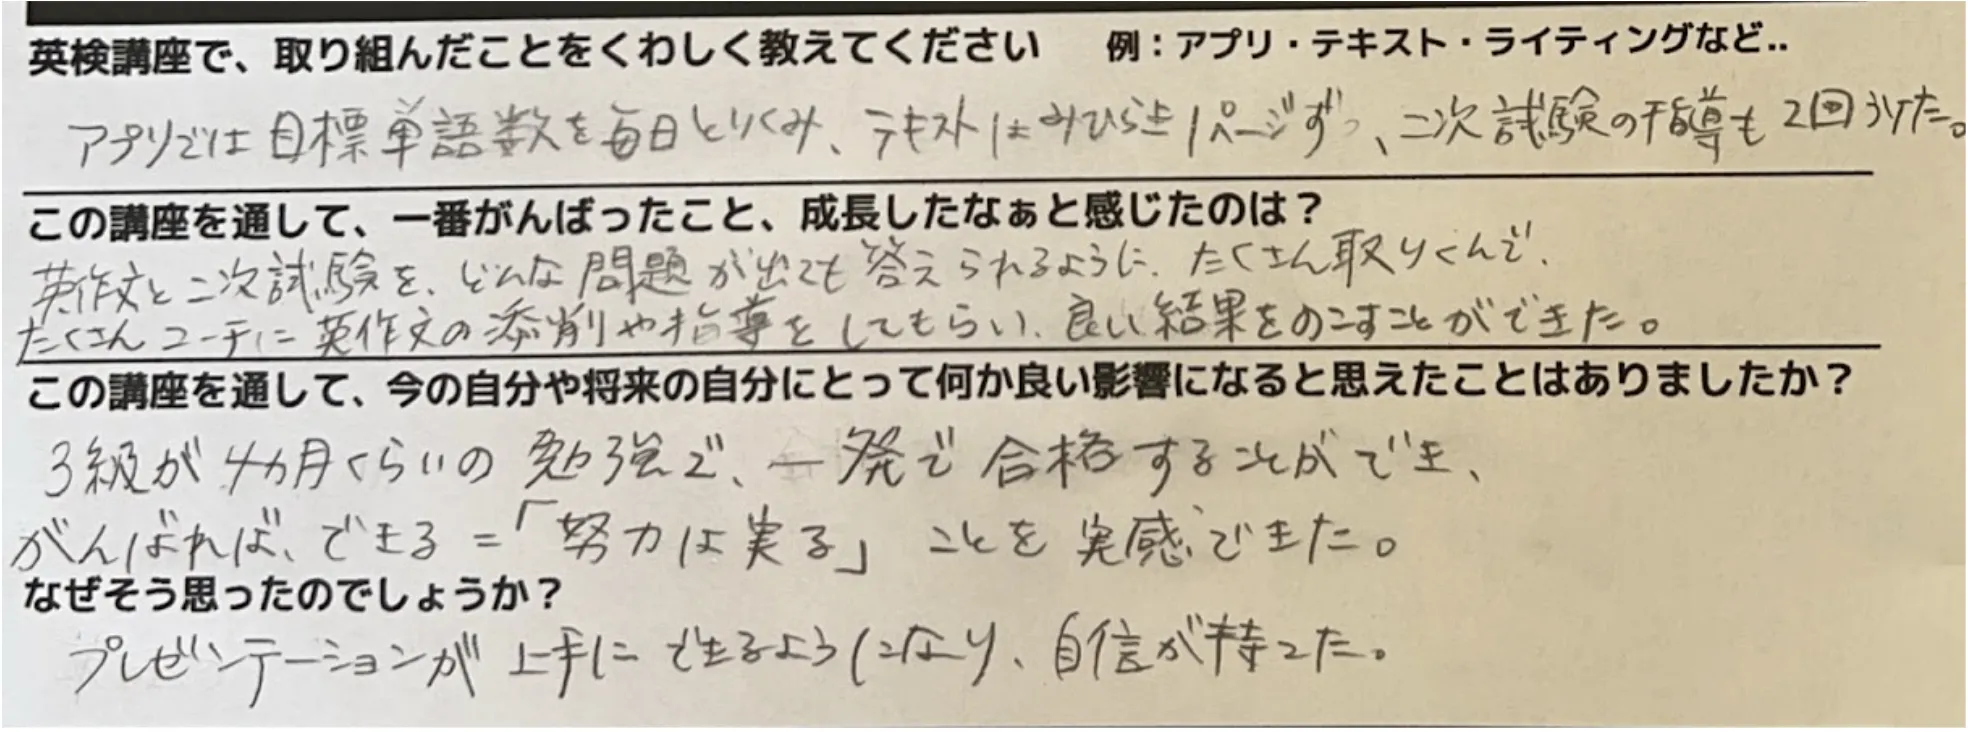 英検講座で、取り組んだことをくわしく教えてください　例：アプリ・テキスト・ライティングなど..
アプリでは目標単語数を毎日とりくみ、テキストはみひらき1ページずつ、二次試験の指導も2回うけた。
この講座を通して、一番がんばったこと、成長したなぁと感じたのは？
英作文と二次試験を、どんな問題が出ても答えられるように、たくさん取りくんで、
たくさんコーチに英作文の添削や指導をしてもらい、良い結果をのこすことができた。
この講座を通して、今の自分や将来の自分にとって何か良い影響になると思えたことはありましたか？
3級が4カ月くらいの勉強で、一発で合格することができ、
がんばれば、できる＝「努力は実る」ことを実感できた。
なぜそう思ったのでしょうか？
プレゼンテーションが上手にできるようになり、自信が持てた。